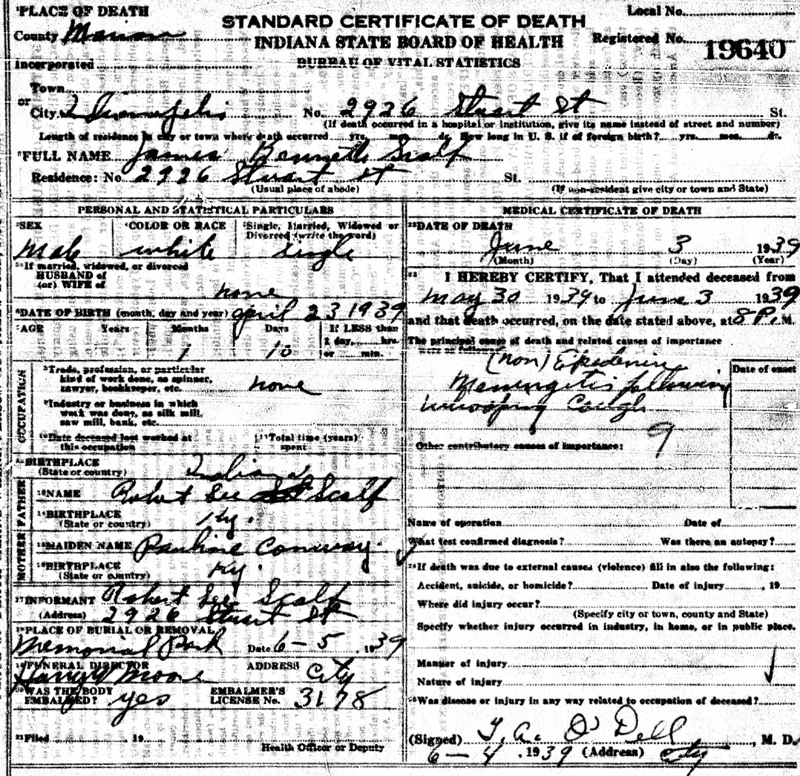 PLACE OF DEATH
STANDARD CERTIFICATE OF DEATH
Local No.
County Marion
INDIANA STATE BOARD OF HEALTH
Registered No. 19640
Incorporated
BUREAU OF VITAL STATISTICS
Town
or
City Indianapolis No. 2926 Stuart St St.
(If death occurred in a hospital or institution, give its name instead of street and number)
Length of residence in city or town where death occurred yrs. mos. ds. How long in U. S. if of foreign birth? yrs. mos. ds.
FULL NAME James Kenneth Scalf
Residence: No. 2926 Stuart St St.
(Usual place of abode) (If non-resident give city or town and State)
PERSONAL AND STATISTICAL PARTICULARS
SEX COLOR OR RACE Single, Married, Widowed or
Divorced (write the word)
Male white single
If married, widowed, or divorced
HUSBAND of
(or) WIFE of none
DATE OF BIRTH (month, day and year) April 23 1939
AGE Years Months Days If LESS than
1 day, hrs.
1 10 or min.
OCCUPATION
Trade, profession, or particular
kind of work done, as spinner,
sawyer, bookkeeper, etc. none
Industry or business in which
work was done, as silk mill,
saw mill, bank, etc.
Date deceased last worked at
this occupation
Total time (years)
spent
BIRTHPLACE
(State or country) Indiana
FATHER
NAME Robert Lee Scalf
BIRTHPLACE
(State or country) Ky.
MOTHER
MAIDEN NAME Pauline Conway
BIRTHPLACE
(State or country) Ky.
INFORMANT Robert Lee Scalf
(Address) 2926 Stuart St
PLACE OF BURIAL OR REMOVAL
Memorial Park Date 6-5 1939
FUNERAL DIRECTOR ADDRESS
Harry Moore City
WAS THE BODY
EMBALMED? yes
EMBALMER'S
LICENSE No. 3178
Filed 19
Health Officer or Deputy
MEDICAL CERTIFICATE OF DEATH
DATE OF DEATH
June 3 1939
(Month) (Day) (Year)
I HEREBY CERTIFY, That I attended deceased from
May 30 1939 to June 3 1939
and that death occurred, on the date stated above, at 8 P. M.
The principal cause of death and related causes of importance
(non) Epidemic
Date of onset
Meningitis following
Whooping Cough
9
Other contributory causes of importance:
Name of operation Date of
What test confirmed diagnosis? Was there an autopsy?
If death was due to external causes (violence) fill in also the following:
Accident, suicide, or homicide? Date of injury , 19
Where did injury occur?
(Specify city or town, county and State)
Specify whether injury occurred in industry, in home, or in public place.
Manner of injury
Nature of injury
Was disease or injury in any way related to occupation of deceased?
(Signed) O'Dell , M. D.
1939 (Address) City